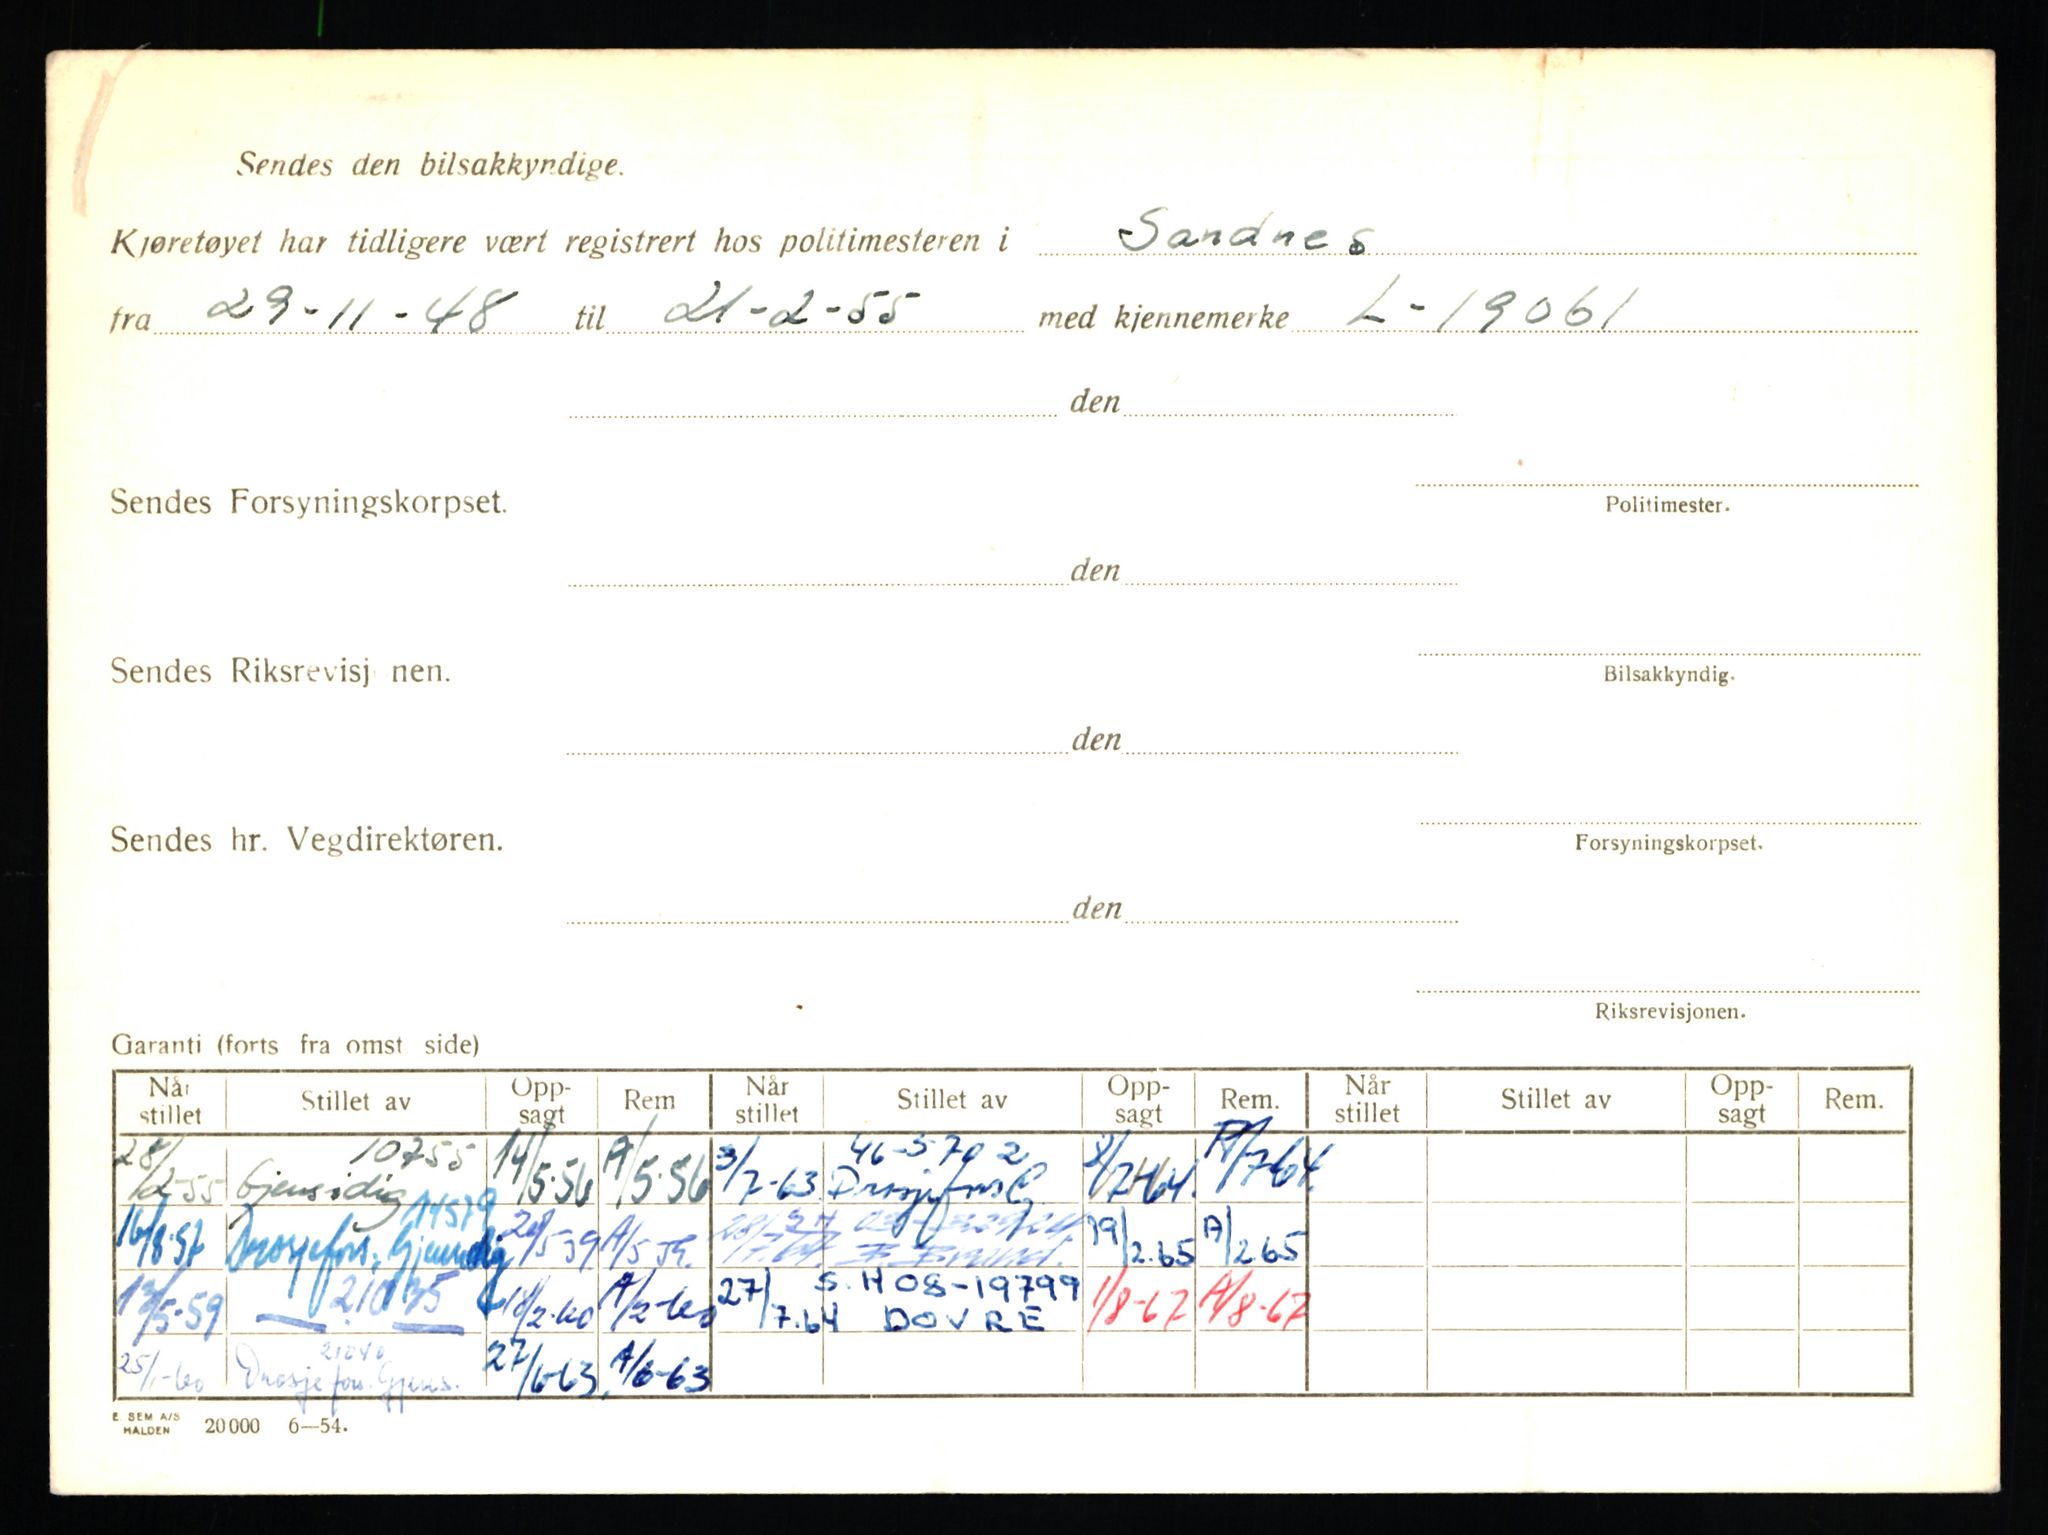 Sendes den bilsakkyndige.
Kjøretøyet har tidligere vært registrert hos politimesteren i Sandnes
fra 29-11-48 til 21-2-55 med kjennemerke L-19061
den
Sendes Forsyningskorpset.
Politimester.
den
Sendes Riksrevisj nen.
Bilsakkyndig.
den
Sendes hr. Vegdirektøren.
Forsyningskorpset.
den
Riksrevisjonen.
Garanti (forts fra omst side)
Når stillet Stillet av Opp-sagt Rem Når stillet Stillet av Opp-sagt Rem. Når stillet Stillet av Opp-sagt Rem.
28/2-55 10755 Gjensidig 14/5-56 A/5-56 3/7-63 Drosjefors. /7-64. A/7-64.
16/8-57 14579 Drosjefors. Gjensidig /5-59 A/5-59. 19/2.65 A/2.65
/5-59 18/2-60 A/2-60 27/7.64 S.H 08-19799 DOVRE 1/8-67 A/8-67
25/1-60 21040 Drosjefors. Gjens. 27/6-63 A/6-63
E. SEM A/S
HALDEN 20000 6—54.